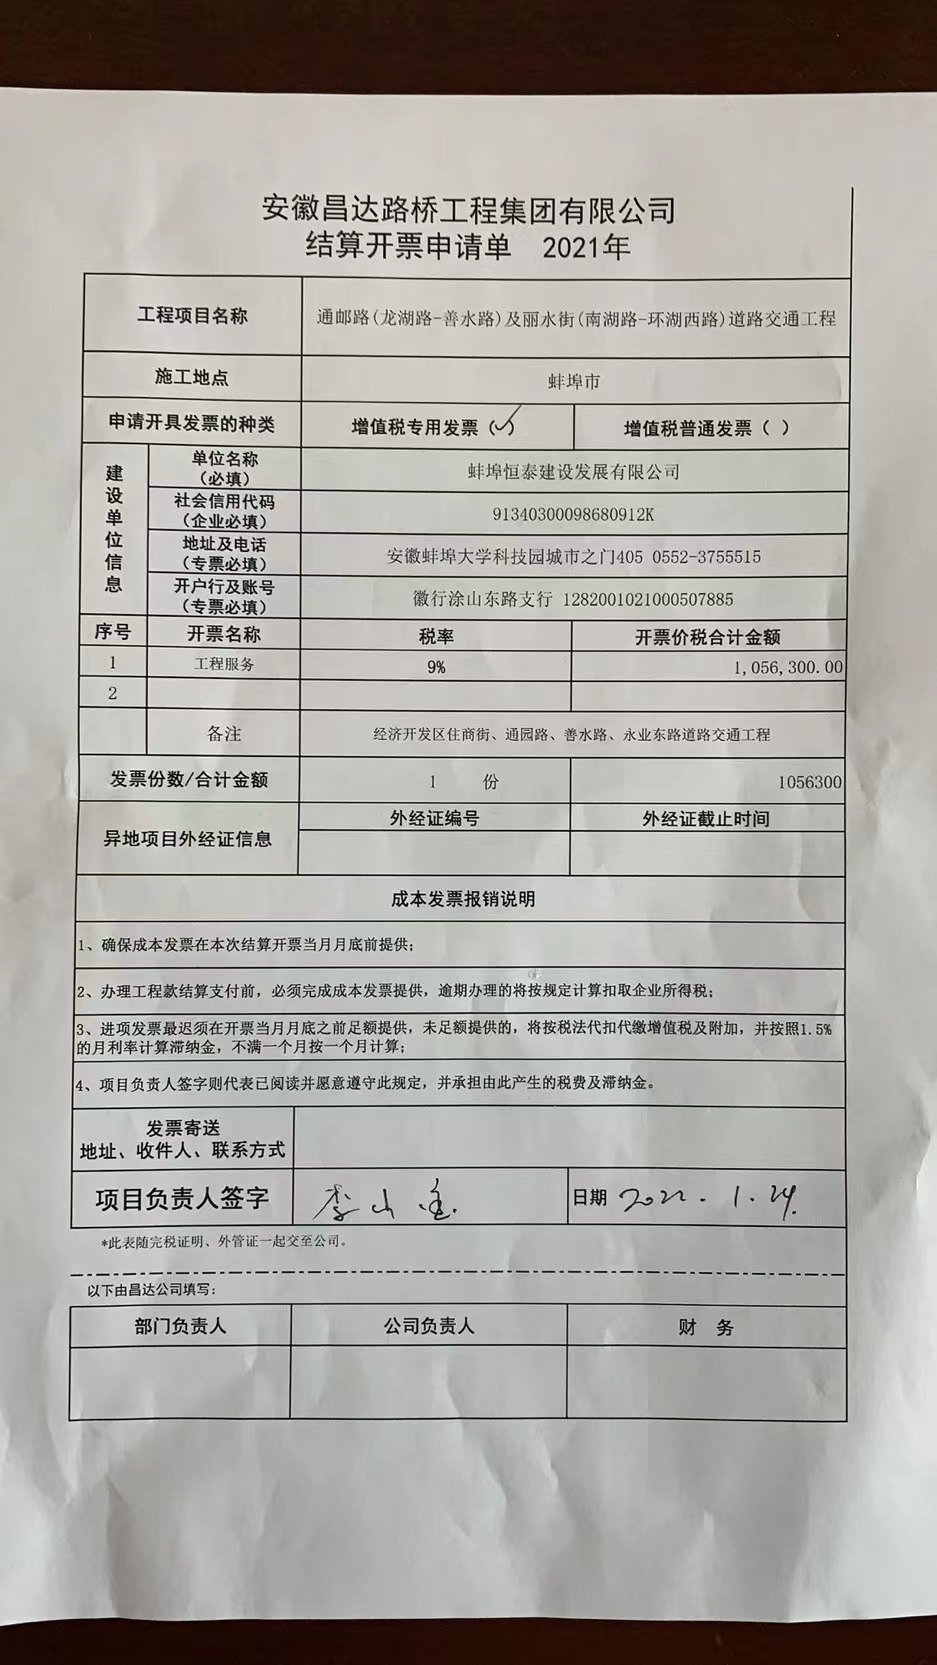 安徽昌达路桥工程集团有限公司
结算开票申请单 2021年
工程项目名称 通邮路(龙湖路-善水路)及丽水街(南湖路-环湖西路)道路交通工程
施工地点 蚌埠市
申请开具发票的种类 增值税专用发票(✓) 增值税普通发票( )
建设单位信息
单位名称
(必填)
蚌埠恒泰建设发展有限公司
社会信用代码
(企业必填)
91340300098680912K
地址及电话
(专票必填)
安徽蚌埠大学科技园城市之门405 0552-3755515
开户行及账号
(专票必填)
徽行涂山东路支行 1282001021000507885
序号 开票名称 税率 开票价税合计金额
1 工程服务 9% 1,056,300.00
2
备注 经济开发区住商街、通园路、善水路、永业东路道路交通工程
发票份数/合计金额 1 份 1056300
异地项目外经证信息 外经证编号 外经证截止时间
成本发票报销说明
1、确保成本发票在本次结算开票当月月底前提供;
2、办理工程款结算支付前，必须完成成本发票提供，逾期办理的将按规定计算扣取企业所得税;
3、进项发票最迟须在开票当月月底之前足额提供，未足额提供的，将按税法代扣代缴增值税及附加，并按照1.5%
的月利率计算滞纳金，不满一个月按一个月计算;
4、项目负责人签字则代表已阅读并愿意遵守此规定，并承担由此产生的税费及滞纳金。
发票寄送
地址、收件人、联系方式
项目负责人签字 李山 日期 2022.1.24.
*此表随完税证明、外管证一起交至公司。
以下由昌达公司填写:
部门负责人 公司负责人 财 务